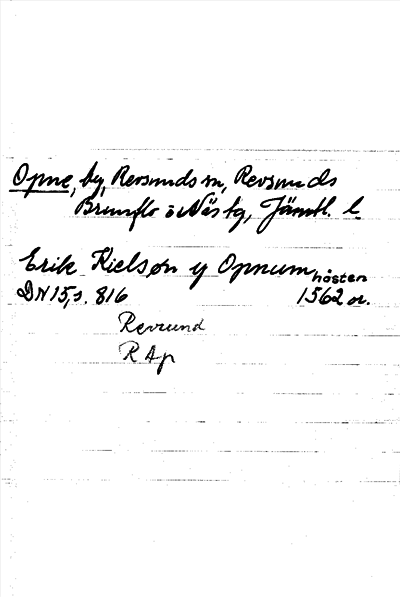 Opne, by, Revsunds sn, Revsunds
Brunflo o Näs tg, Jämtl. l.
Erik Kielsøn y Opnum, hösten
DN 15, s. 816 1562 or.
Revsund
R Ap